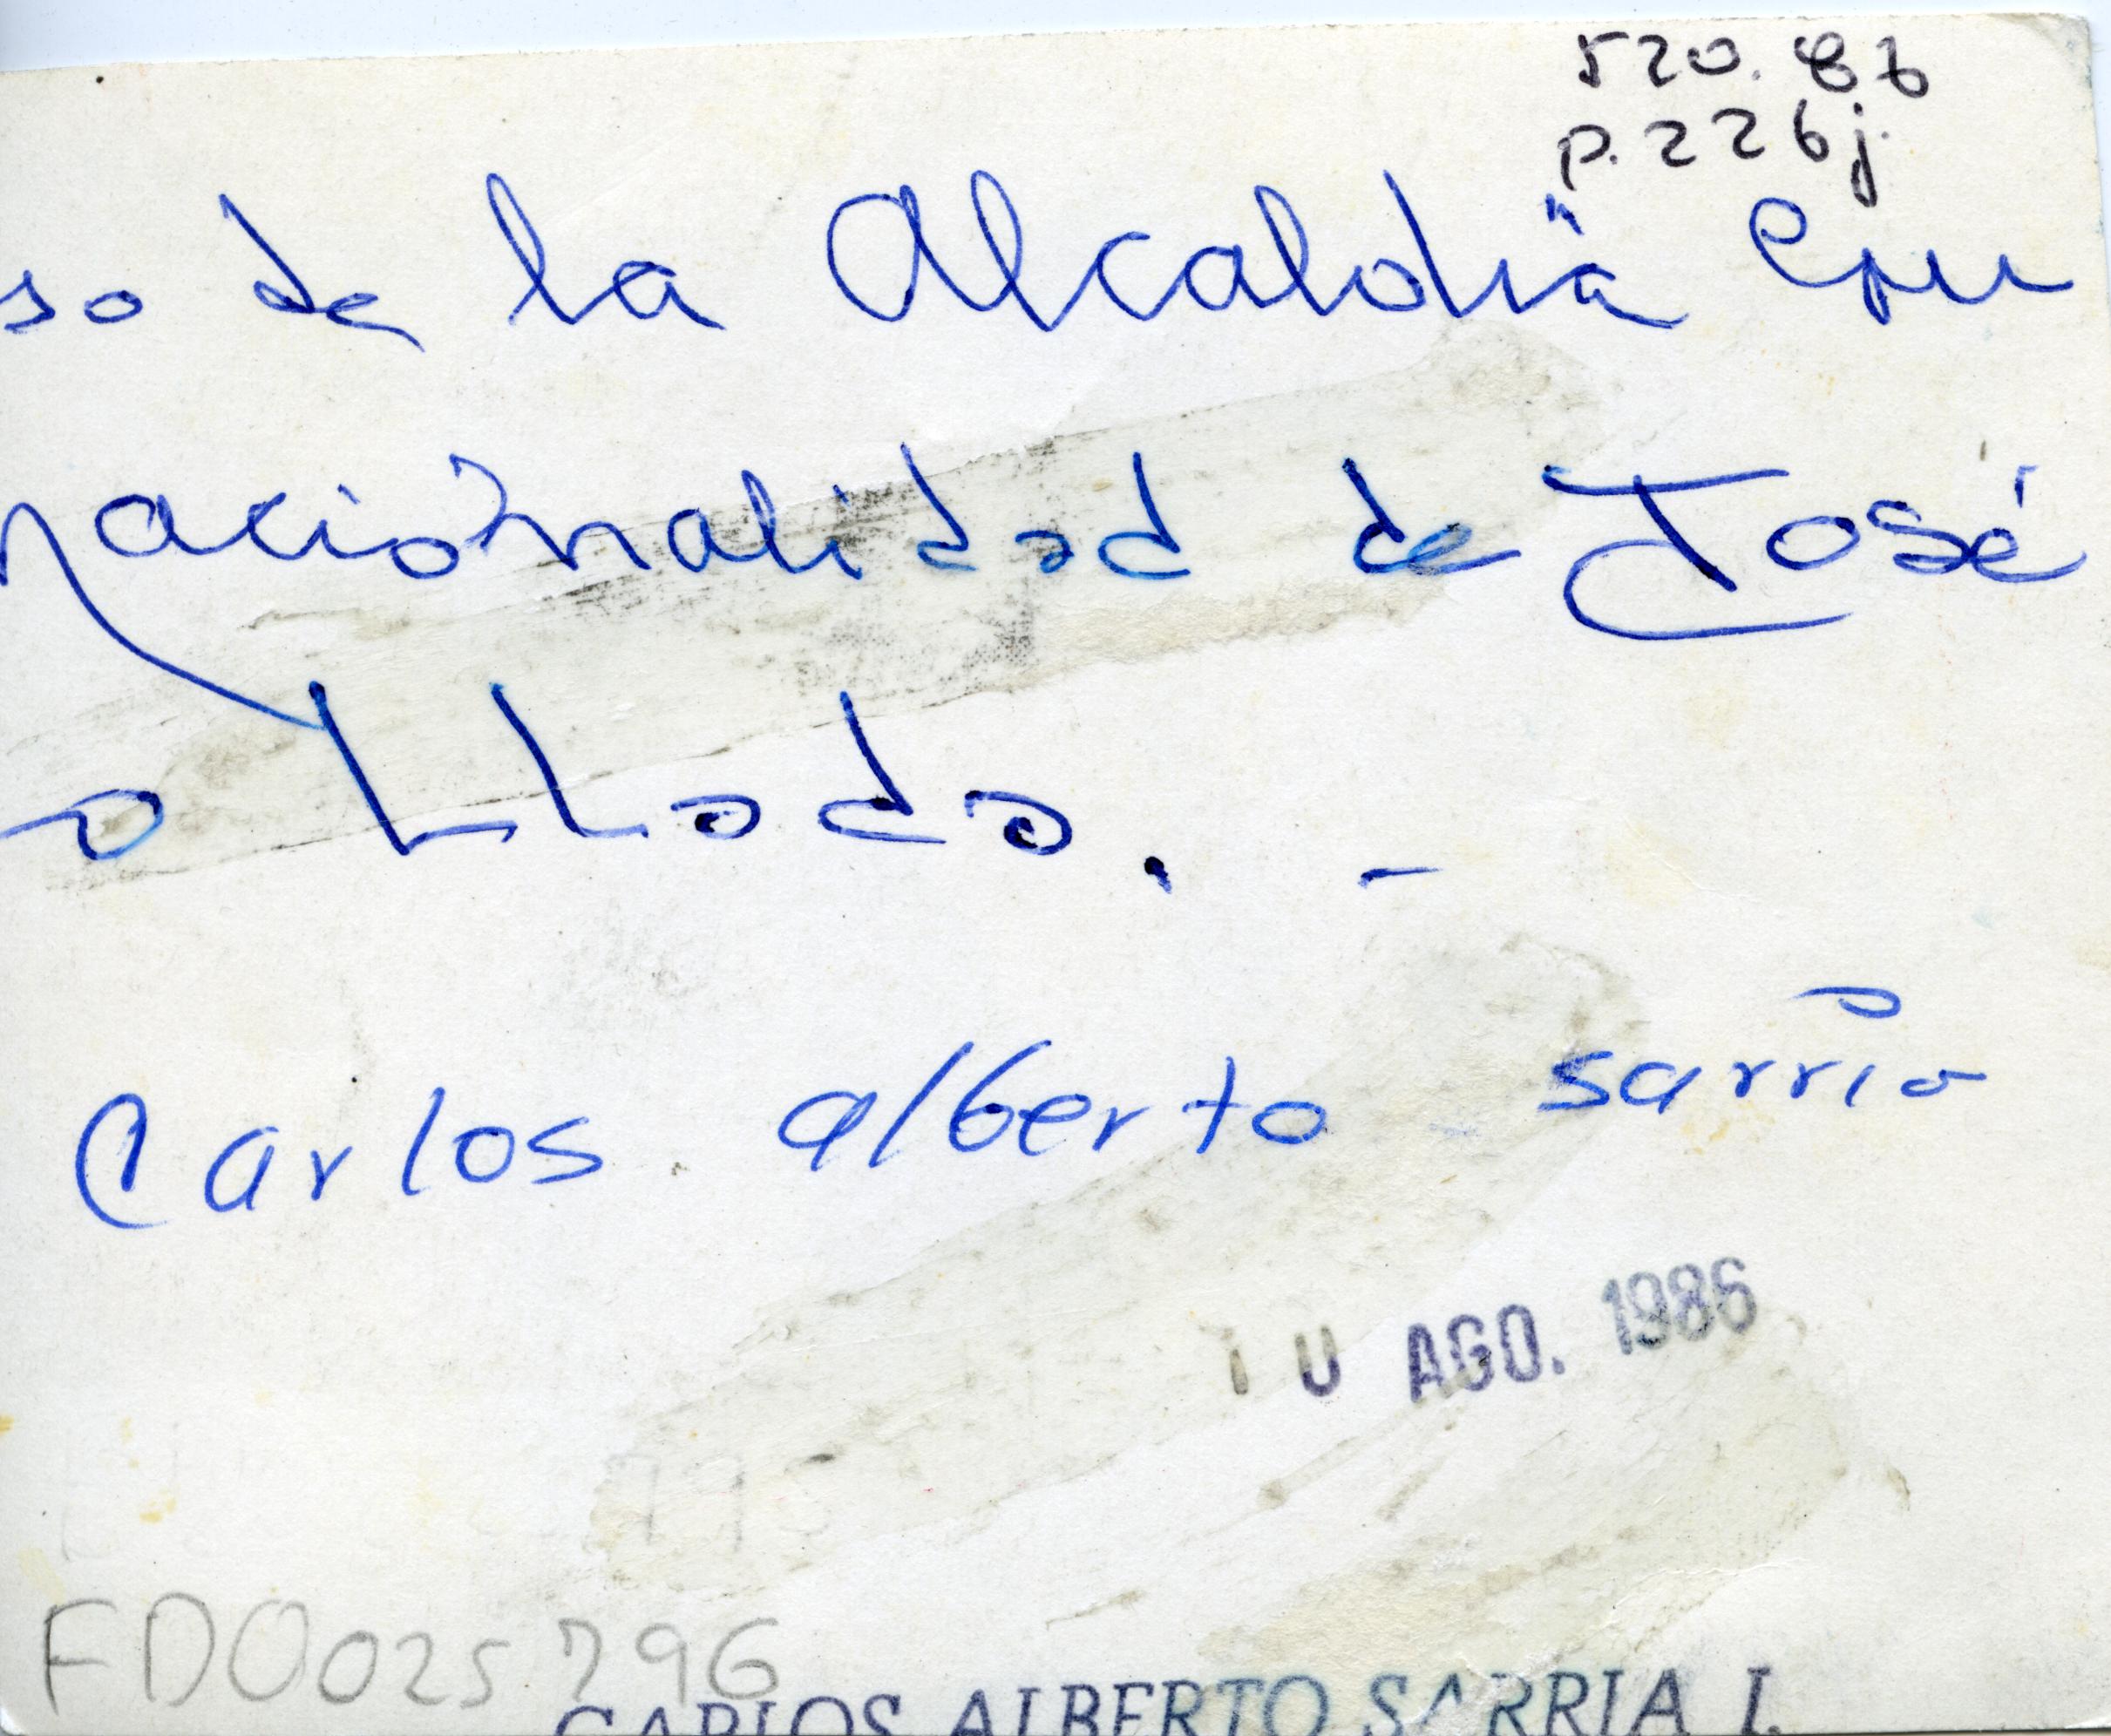 520.86
p.226j.
so de la Alcaldía Con
nacionalidad de José
o LLada.-
Carlos alberto sarria
10 AGO. 1986
FD0025796
CARLOS ALBERTO SARRIA I.